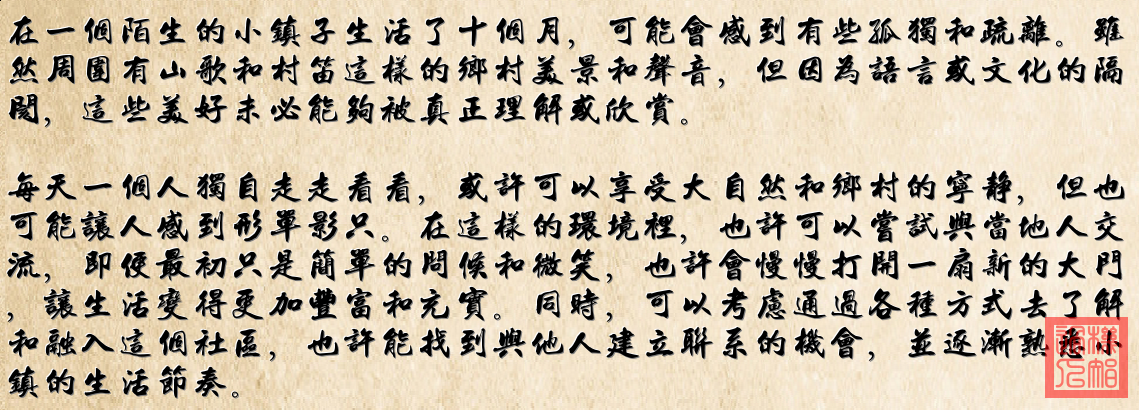 在一個陌生的小鎮子生活了十個月，可能會感到有些孤獨和疏離。雖
然周圍有山歌和村笛這樣的鄉村美景和聲音，但因為語言或文化的隔
閡，這些美好未必能夠被真正理解或欣賞。
每天一個人獨自走走看看，或許可以享受大自然和鄉村的寧靜，但也
可能讓人感到形單影只。在這樣的環境裡，也許可以嘗試與當地人交
流，即便最初只是簡單的問候和微笑，也許會慢慢打開一扇新的大門
，讓生活變得更加豐富和充實。同時，可以考慮通過各種方式去了解
和融入這個社區，也許能找到與他人建立聯系的機會，並逐漸熟悉小
鎮的生活節奏。